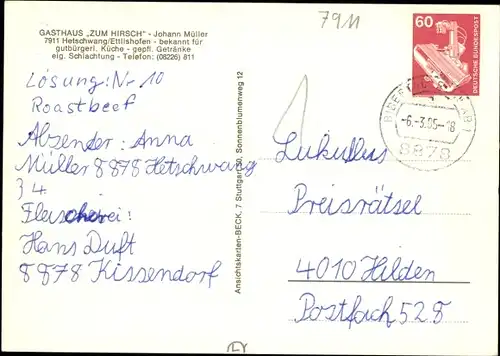 GASTHAUS „ZUM HIRSCH" - Johann Müller
7911 Hetschwang/Ettlishofen - bekannt für
gutbürgerl. Küche - gepfl. Getränke
eig. Schlachtung - Telefon: (08226) 811
7911
60
DEUTSCHE BUNDESPOST
-6.-3.85-18
8878
Lösung: Nr 10
Roastbeef
Absender: Anna
Müller 8878 Hetschwang
34
Fleischerei:
Hans Duft
8878 Kissendorf
Ansichtskarten-BECK, 7 Stuttgart 30, Sonnenblumenweg 12
Lukullus
Preisrätsel
4010 Hilden
Postfach 528